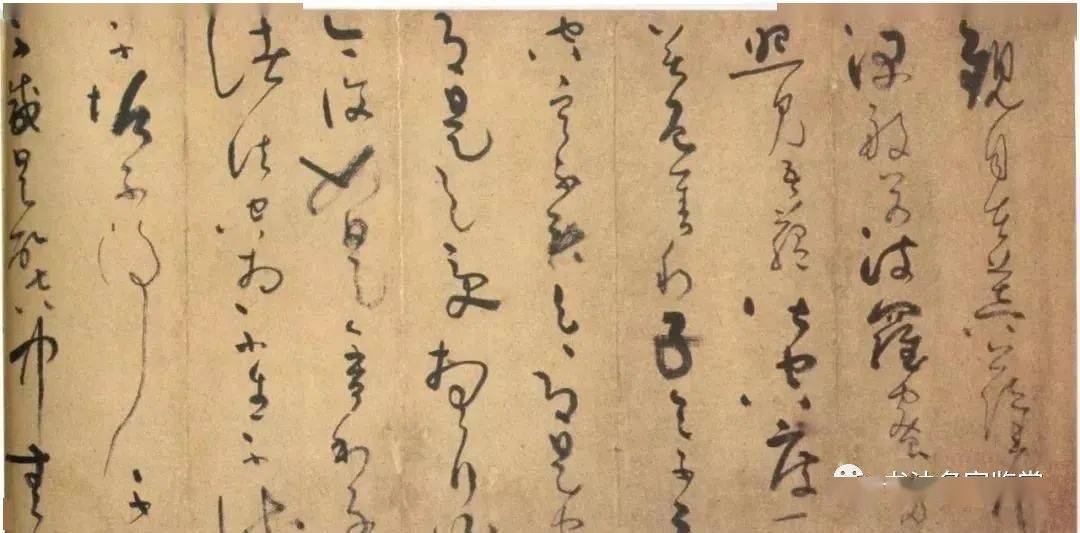 觀自在菩薩行
深般若波羅蜜多
照見五蘊皆空度一
苦厄舍利子色不異
空空不異色色即是空
即是色受想行識
亦復如是舍利子
諸法空相不生不滅
不垢不淨不
不減是故空中無
书法名家鉴赏